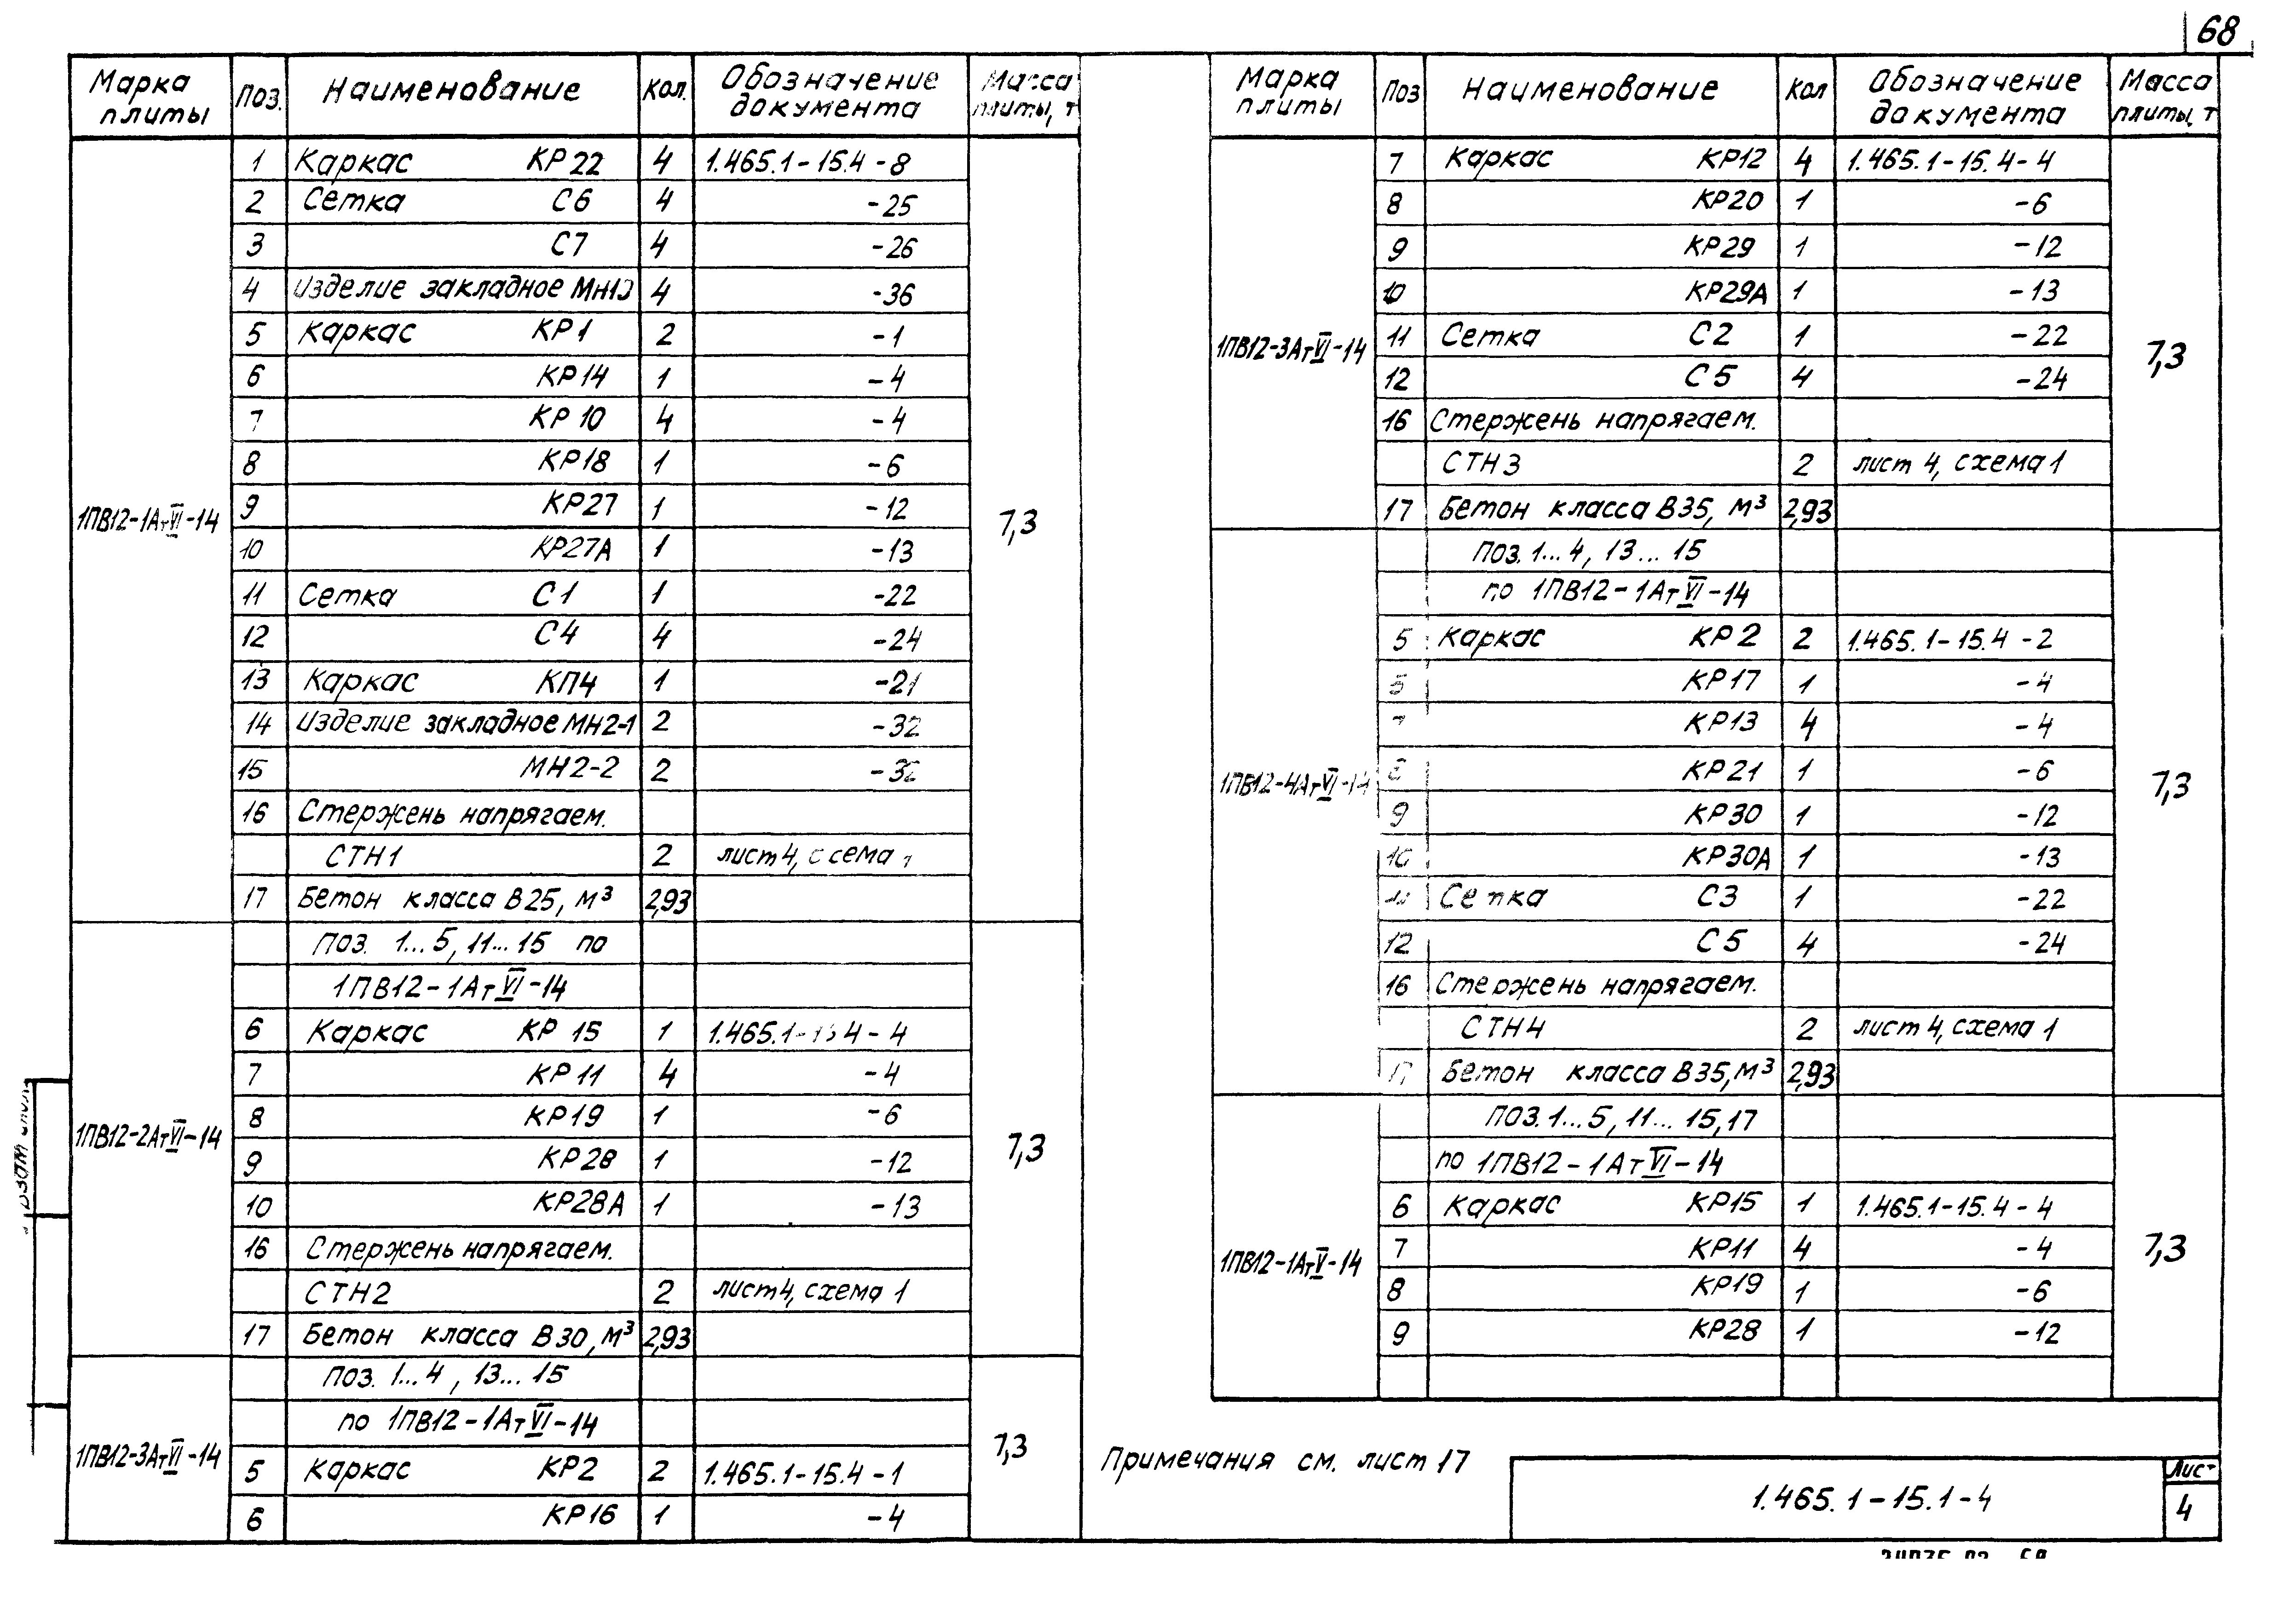 68
Марка плиты Поз. Наименование Кол. Обозначение документа Масса плиты, т
1ПВ12-1АтVI-14 7,3
1 Каркас КР22 4 1.465.1-15.4-8
2 Сетка С6 4 -25
3 С7 4 -26
4 Изделие закладное 4 -36
5 Каркас КР1 2 -1
6 КР14 1 -4
7 КР10 4 -4
8 КР18 1 -6
9 КР27 1 -12
10 КР27А 1 -13
11 Сетка С1 1 -22
12 С4 4 -24
13 Каркас КП4 1 -21
14 Изделие закладное МН2-1 2 -32
15 МН2-2 2 -32
16 Стержень напрягаем.
СТН1 2 лист 4,
17 Бетон класса В25, м³ 2,93
1ПВ12-2АтVI-14 7,3
Поз. 1...5, 11...15 по
1ПВ12-1АтVI-14
6 Каркас КР15 1 1.465.1-15.4-4
7 КР11 4 -4
8 КР19 1 -6
9 КР28 1 -12
10 КР28А 1 -13
16 Стержень напрягаем.
СТН2 2 лист 4, схема 1
17 Бетон класса В30, м³ 2,93
1ПВ12-3АтVI-14 7,3
Поз. 1...4, 13...15
по 1ПВ12-1АтVI-14
5 Каркас КР2 2 1.465.1-15.4-1
6 КР16 1 -4
Марка плиты Поз Наименование Кол Обозначение документа Масса плиты, т
1ПВ12-3АтVI-14 7,3
7 Каркас КР12 4 1.465.1-15.4-4
8 КР20 1 -6
9 КР29 1 -12
10 КР29А 1 -13
11 Сетка С2 1 -22
12 С5 4 -24
16 Стержень напрягаем.
СТН3 2 лист 4, схема 1
17 Бетон класса В35, м³ 2,93
1ПВ12-4АтVI-14 7,3
Поз. 1...4, 13...15
по 1ПВ12-1АтVI-14
5 Каркас КР2 2 1.465.1-15.4-2
КР17 1 -4
КР13 4 -4
КР21 1 -6
9 КР30 1 -12
10 КР30А 1 -13
Сетка С3 1 -22
12 С5 4 -24
16 Стержень напрягаем.
СТН4 2 лист 4, схема 1
17 Бетон класса В35, м³ 2,93
1ПВ12-1АтV-14 7,3
Поз. 1...5, 11...15, 17
по 1ПВ12-1АтVI-14
6 Каркас КР15 1 1.465.1-15.4-4
7 КР11 4 -4
8 КР19 1 -6
9 КР28 1 -12
Примечания см. лист 17
1.465.1-15.1-4
Лист
4